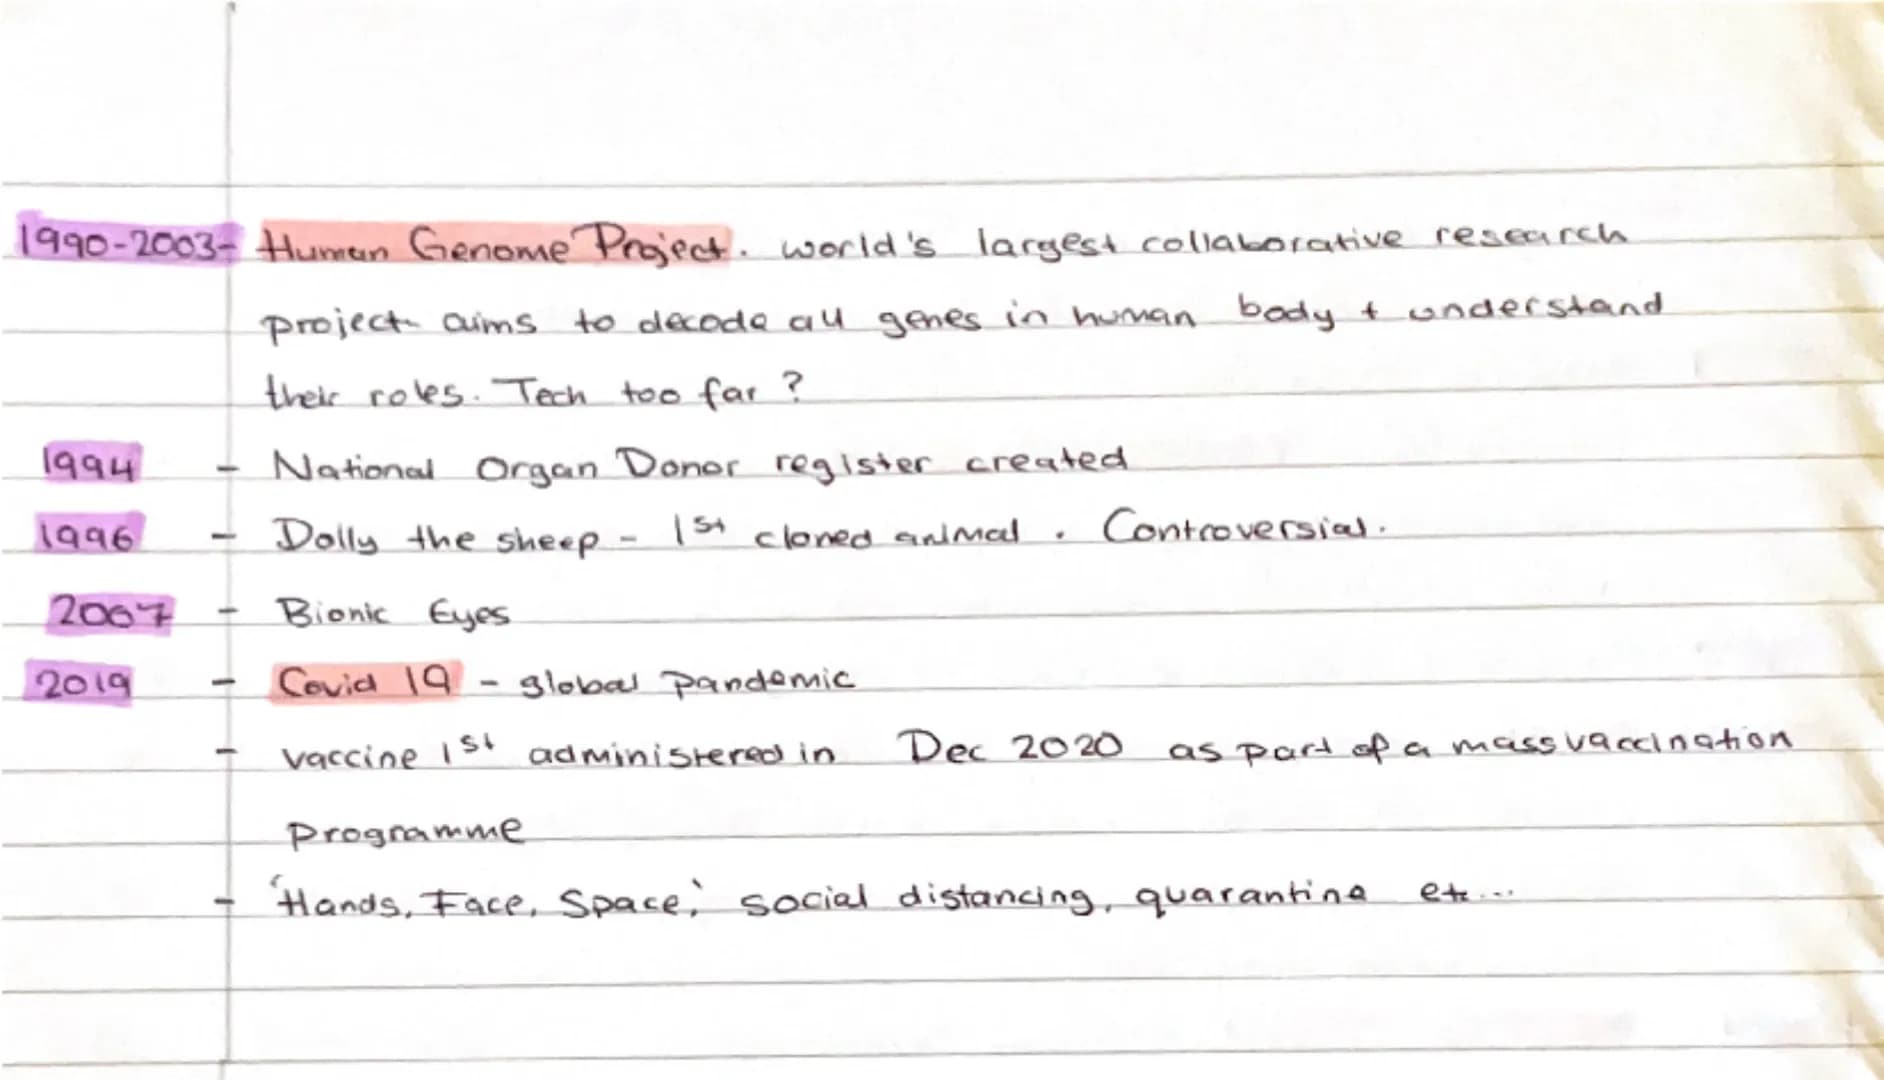 1990-2003- Human Genome Project. world's largest collaborative research
project aims to decode all genes in human body + understand
their roles. Tech too far ?
1994 - National Organ Donor register created
1996 - Dolly the sheep - 1st cloned animal. Controversial.
2007 - Bionic Eyes
2019 - Covid 19 - global pandemic
- vaccine 1st administered in Dec 2020 as part of a mass vaccination
programme
- 'Hands, Face, Space,' social distancing, quarantine etc...